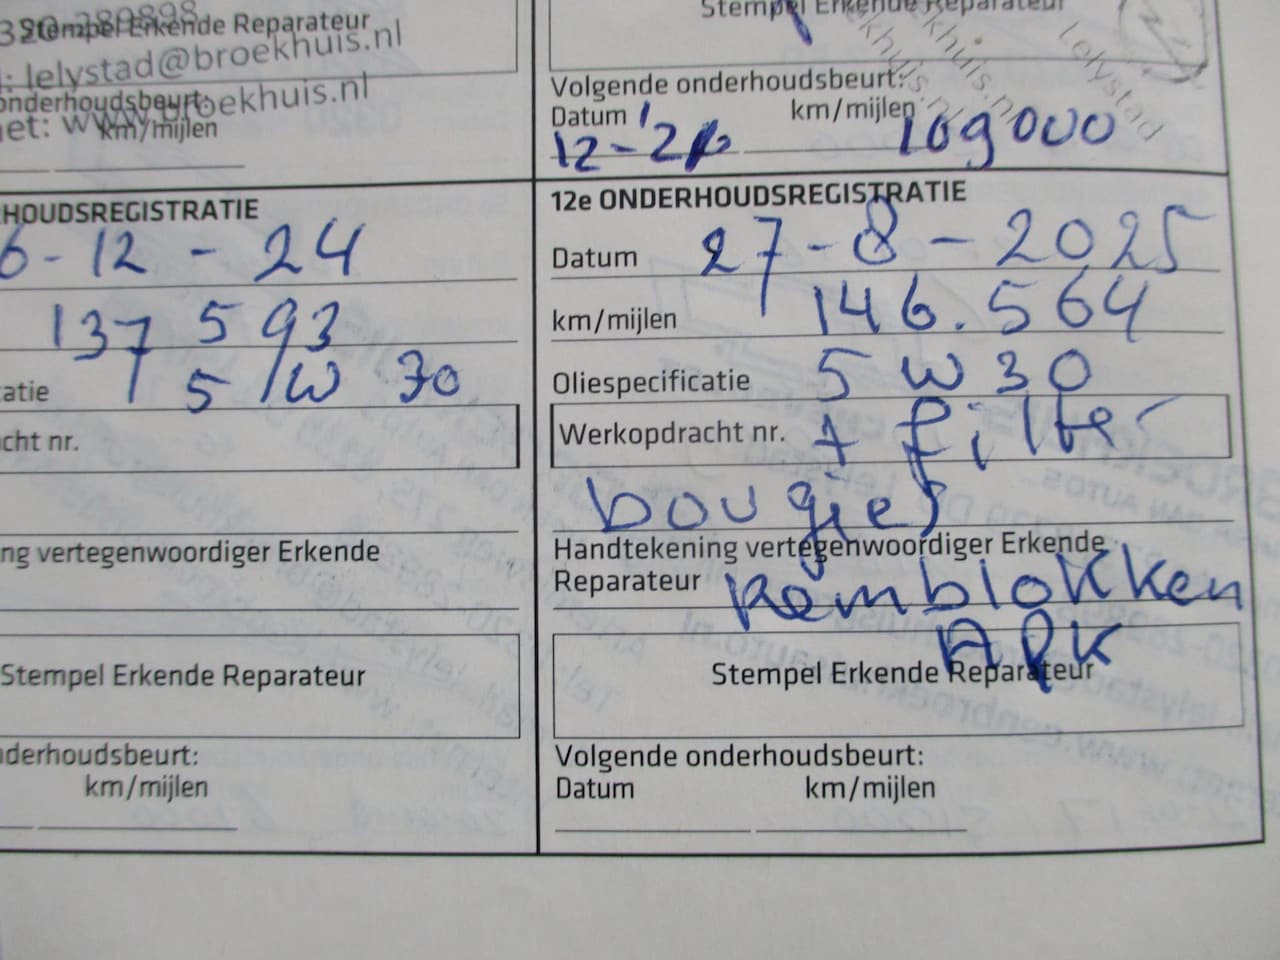 Stempel Erkende Reparateur
l: lelystad@broekhuis.nl
onderhoudsbeurt:
net: www.broekhuis.nl
km/mijlen
Stempel Erkende Reparateur
Lelystad
Volgende onderhoudsbeurt:
Datum km/mijlen
109000
HOUDSREGISTRATIE
6-12-24
137 593
atie 5/W 30
cht nr.
ng vertegenwoordiger Erkende
Stempel Erkende Reparateur
nderhoudsbeurt:
km/mijlen
12e ONDERHOUDSREGISTRATIE
Datum 27-8-2025
km/mijlen 146.564
Oliespecificatie 5 W 30
Werkopdracht nr. + filter
bougies
Handtekening vertegenwoordiger Erkende
Reparateur Remblokken
APK
Stempel Erkende Reparateur
Volgende onderhoudsbeurt:
Datum km/mijlen